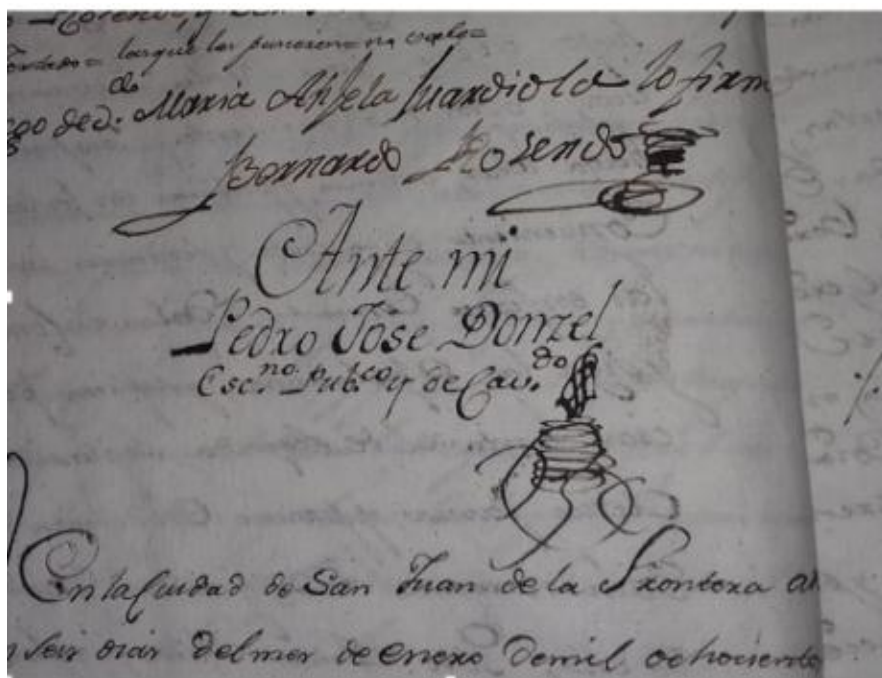 Rosendo, y
las que lo parecieren no vale=
go de d.ª Maria Anjela Guardiola lo firm
Bernardo Rosendo
Ante mi
Pedro Jose Donzel
Esc.no Pub.co y de Cav.do
En la Ciudad de San Juan de la Frontera a
seis dias del mes de enero de mil ochociento